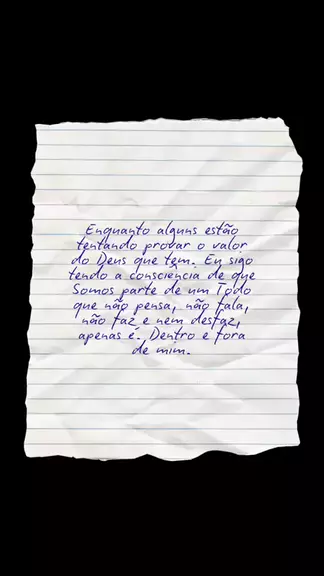 Enquanto alguns estão
tentando provar o valor
do Deus que têm. Eu sigo
tendo a consciência de que
Somos parte de um Todo
que não pensa, não fala,
não faz e nem desfaz,
apenas é. Dentro e fora
de mim.